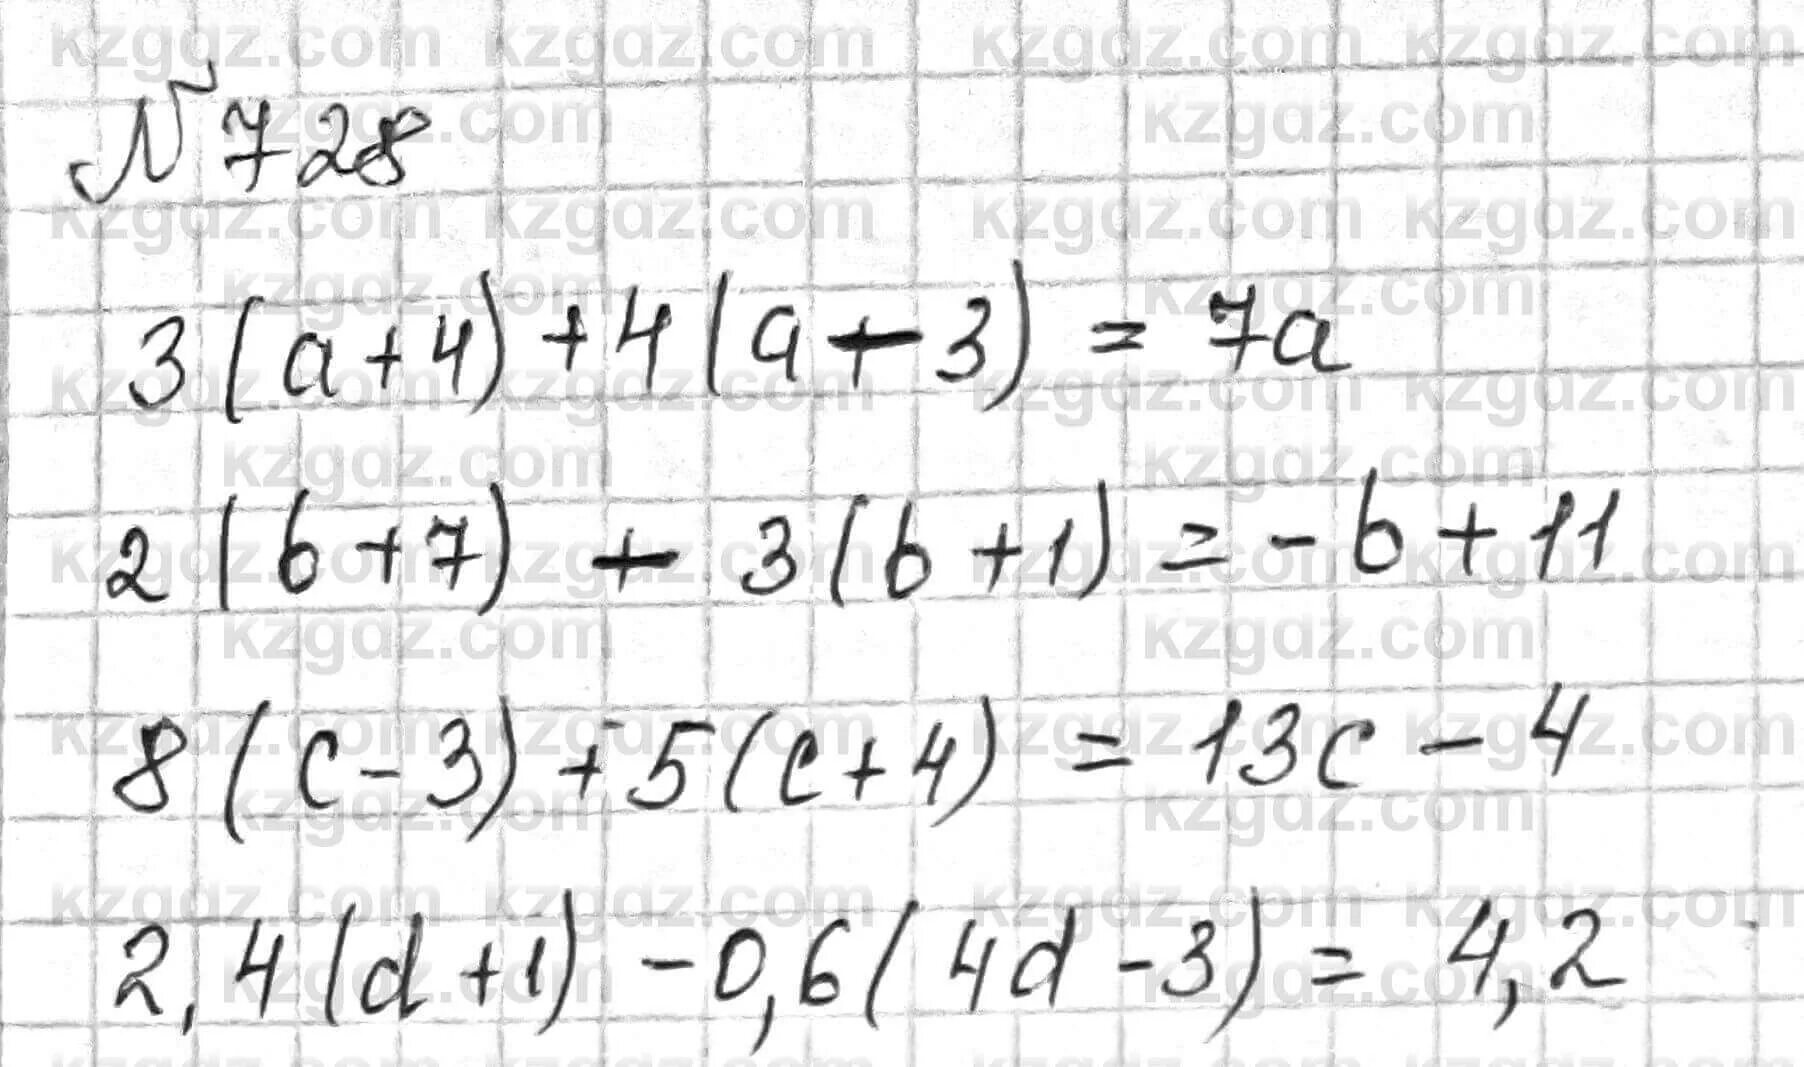 № 728
3(a+4)+4(a-3) = 7a
2(b+7) - 3(b+1) = -b+11
8(c-3)+5(c+4) = 13c-4
2,4(d+1) -0,6(4d-3) = 4,2
kzgdz.com